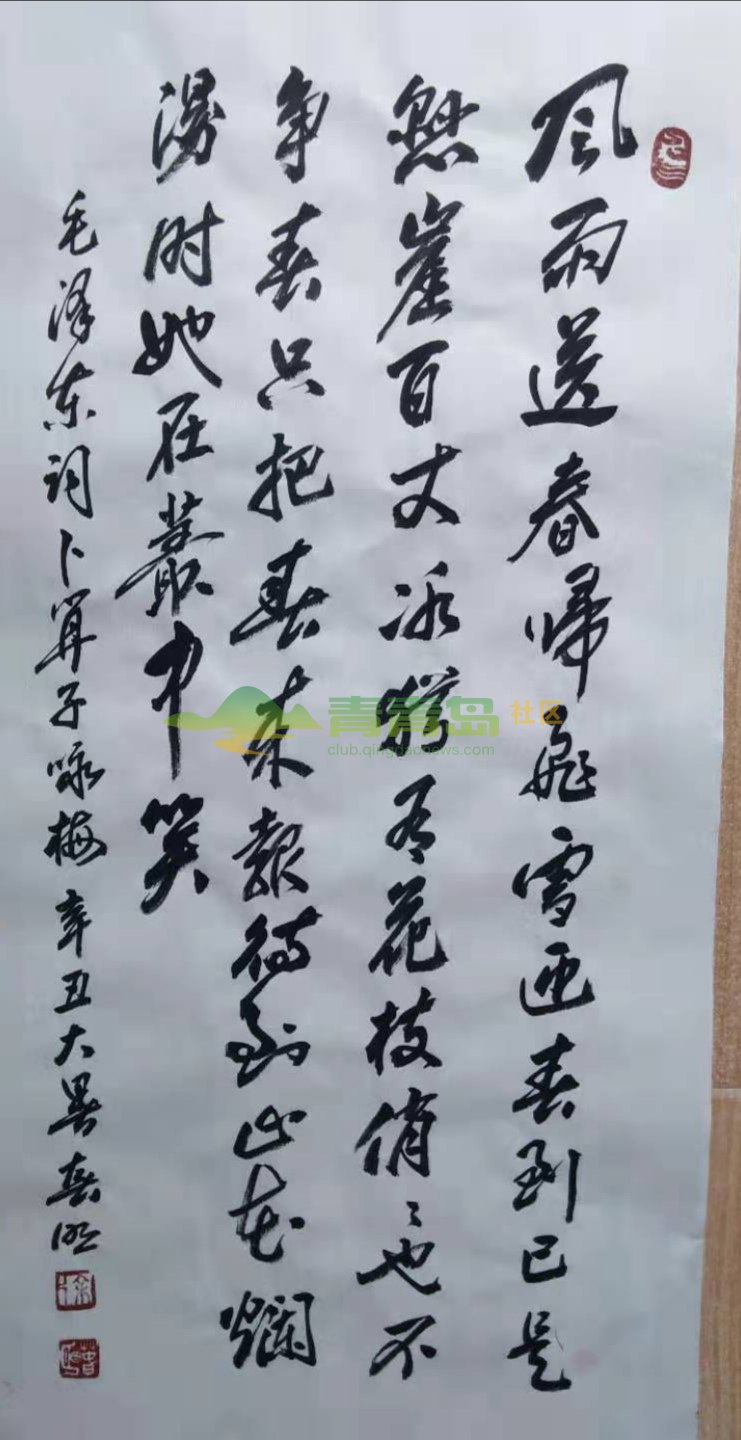 风雨送春帰飛雪迎春到已是
懸崖百丈冰猶有花枝俏〻也不
争春只把春来報待到山花爛
漫时她在叢中笑
毛泽东词卜算子咏梅 辛丑大暑春明
青青岛社区
club.qingdaonews.com